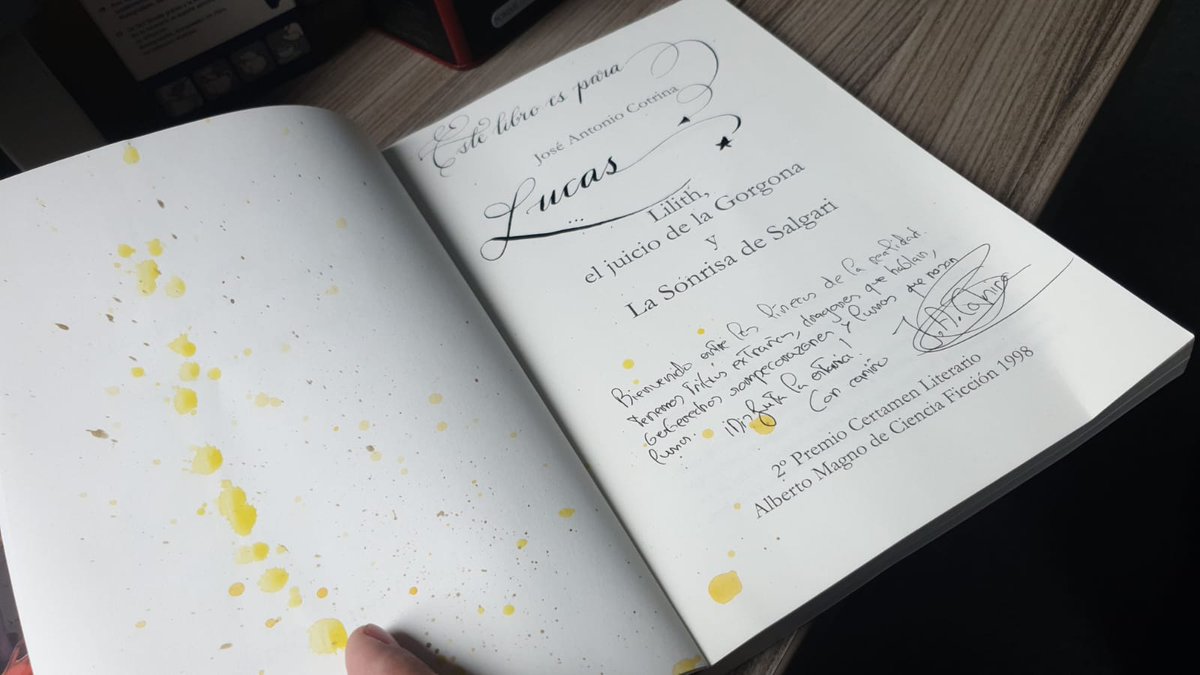 Este libro es para
José Antonio Cotrina
Lucas
...
Lilith,
el juicio de la Gorgona
y
La Sonrisa de Salgari
Bienvenido entre las líneas de la realidad.
Tenemos tritus extraños, dragones que hablan,
rompecorazones y lunas que no son
lunas. ¡Disfruta la estancia!
Con cariño
2º Premio Certamen Literario
Alberto Magno de Ciencia Ficción 1998